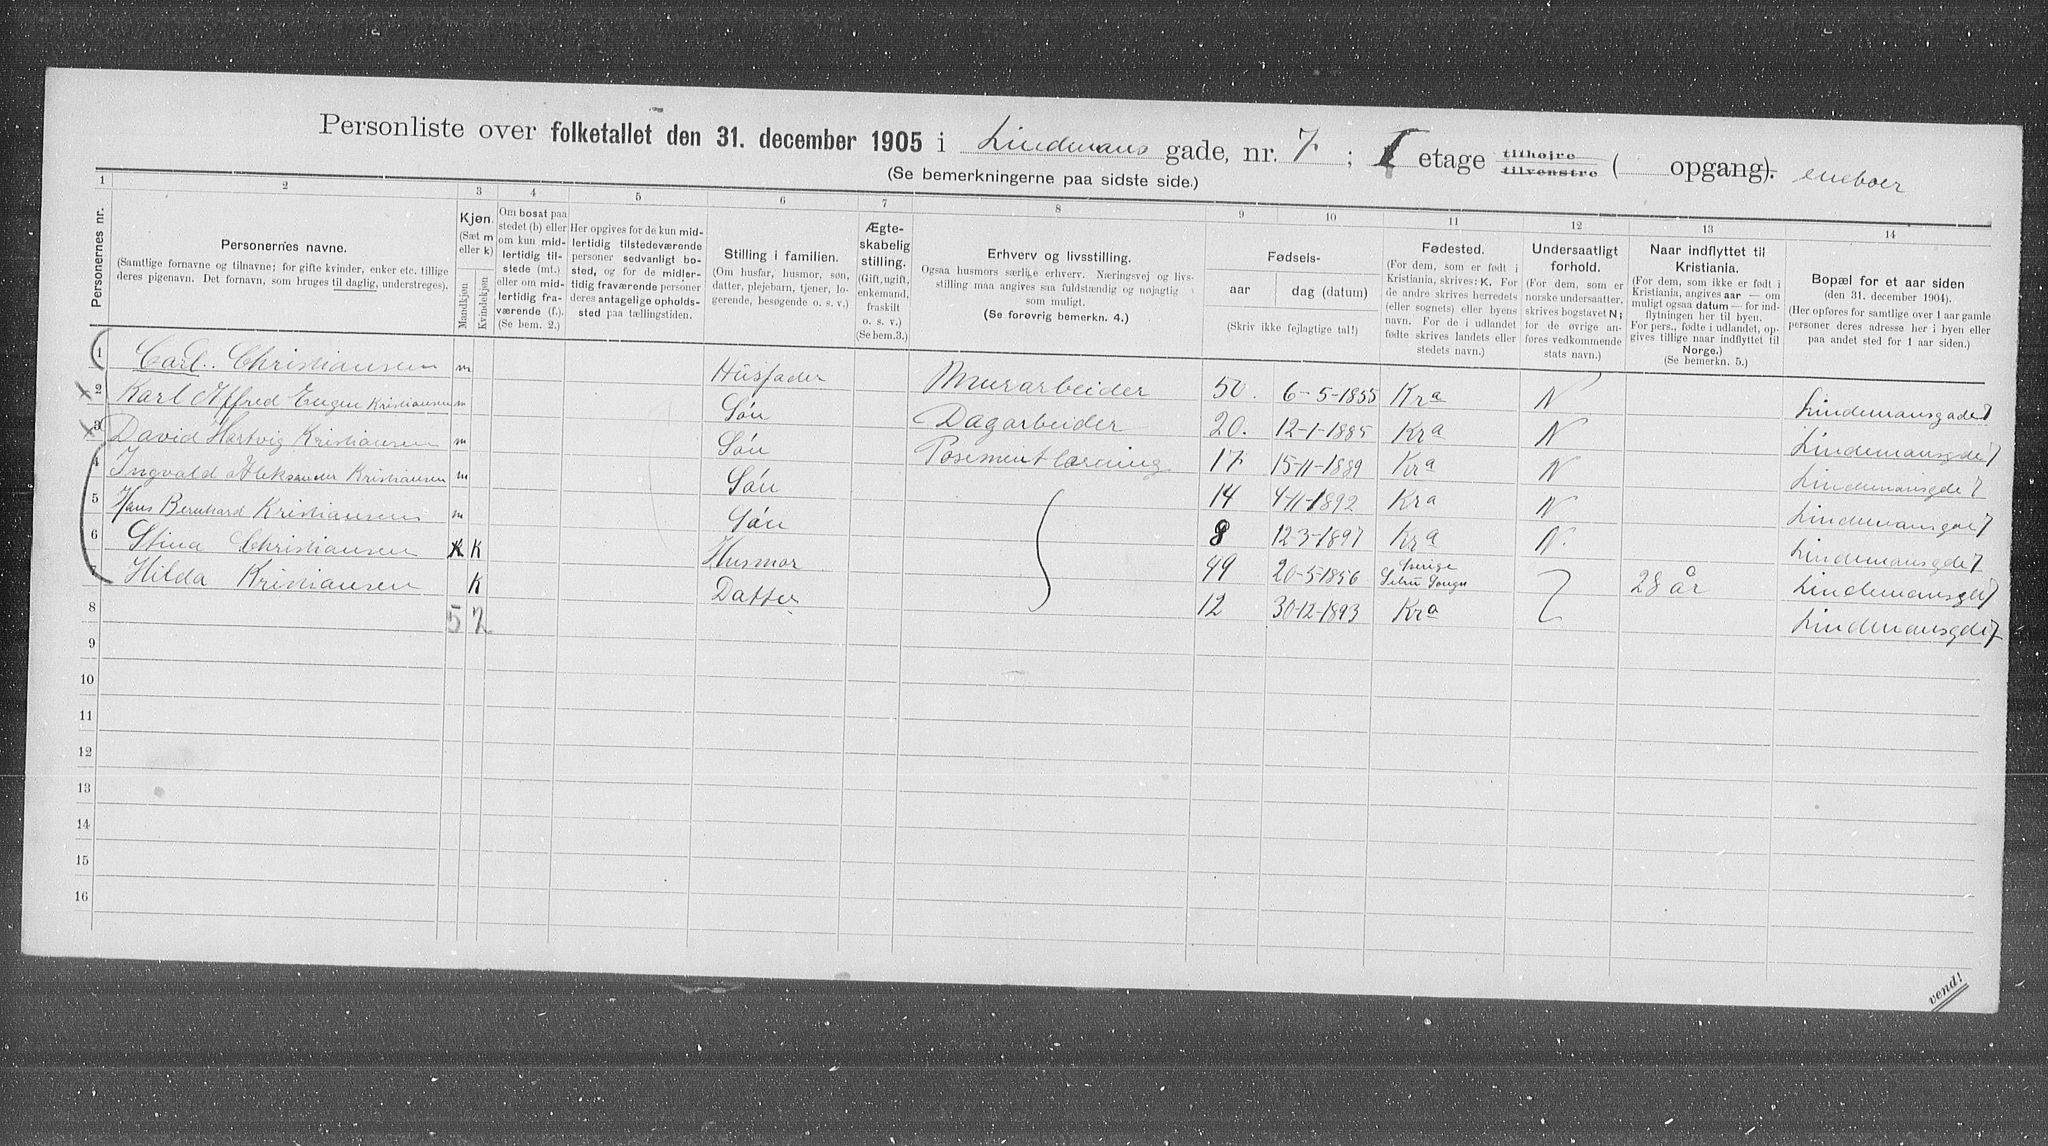 Personliste over folketallet den 31. december 1905 i Lindemans gade, nr. 7 ; I etage tilhøjre tilvenstre ( opgang). eneboer
(Se bemerkningerne paa sidste side.)
1 2 3 4 5 6 7 8 9 10 11 12 13 14
Personernes nr.
Personernes navne.
(Samtlige fornavne og tilnavne; for gifte kvinder, enker etc. tillige
deres pigenavn. Det fornavn, som bruges til daglig, understreges).
Kjøn.
(Sæt m
eller k)
Mandkjøn
Kvindekjøn
Om bosat paa
stedet (b) eller
om kun mid-
lertidig til-
stede (mt.)
eller om mid-
lertidig fra-
værende (f.).
(Se bem. 2.)
Her opgives for de kun mid-
lertidig tilstedeværende
personer sedvanligt bo-
sted, og for de midler-
tidig fraværende personer
deres antagelige opholds-
sted paa tællingstiden.
Stilling i familien.
(Om husfar, husmor, søn,
datter, plejebarn, tjener, lo-
gerende, besøgende o. s. v.)
Ægte-
skabelig
stilling.
(Gift, ugift,
enkemand,
fraskilt
o. s. v.)
(Se bem.3.)
Erhverv og livsstilling.
Ogsaa husmors særlige erhverv. Næringsvej og livs-
stilling maa angives saa fuldstændig og nøjagtig
som muligt.
(Se forøvrig bemerkn. 4.)
Fødsels-
aar
dag (datum)
(Skriv ikke fejlagtige tal!)
Fødested.
(For dem, som er født i
Kristiania, skrives: K. For
de andre skrives herredets
(eller sognets) eller byens
navn. For de i udlandet
fødte skrives landets eller
stedets navn.)
Undersaatligt
forhold.
(For dem, som er
norske undersaatter,
skrives bogstavet N;
for de øvrige an-
føres vedkommende
stats navn.)
Naar indflyttet til
Kristiania.
(For dem, som ikke er født i
Kristiania, angives aar — om
muligt ogsaa datum — for ind-
flytningen her til byen.
For pers., fødte i udlandet, op-
gives tillige naar indflyttet til
Norge.)
(Se bemerkn. 5.)
Bopæl for et aar siden
(den 31. december 1904).
(Her opføres for samtlige over 1 aar gamle
personer deres adresse her i byen eller
paa andet sted for 1 aar siden.)
1 Carl. Christiansen m Husfader Murarbeider 50. 6-5-1855 Kra N Lindemansgade 7
2 Karl Alfred Eugen Kristiansen m Søn Dagarbeider 20. 12-1-1885 Kra N Lindemansgde 7
3 David Hartvig Kristiansen m Søn 17 15-11-1889 Kra N Lindemansgde 7
4 Ingvald Aleksander Kristiansen m Søn 14 4-11-1892 Kra N Lindemansgde 7
5 Hans Bernhard Kristiansen m Søn 8 12-3-1897 Kra N. Lindemansgde 7
6 Stina Christiansen K K Husmor 49 20-5-1856 Sverige 28 år Lindemansgde 7
7 Hilda Kristiansen K Datter 12 30-12-1893 Kra Lindemansgde 7
8 5 2
9
10
11
12
13
14
15
16
vend!